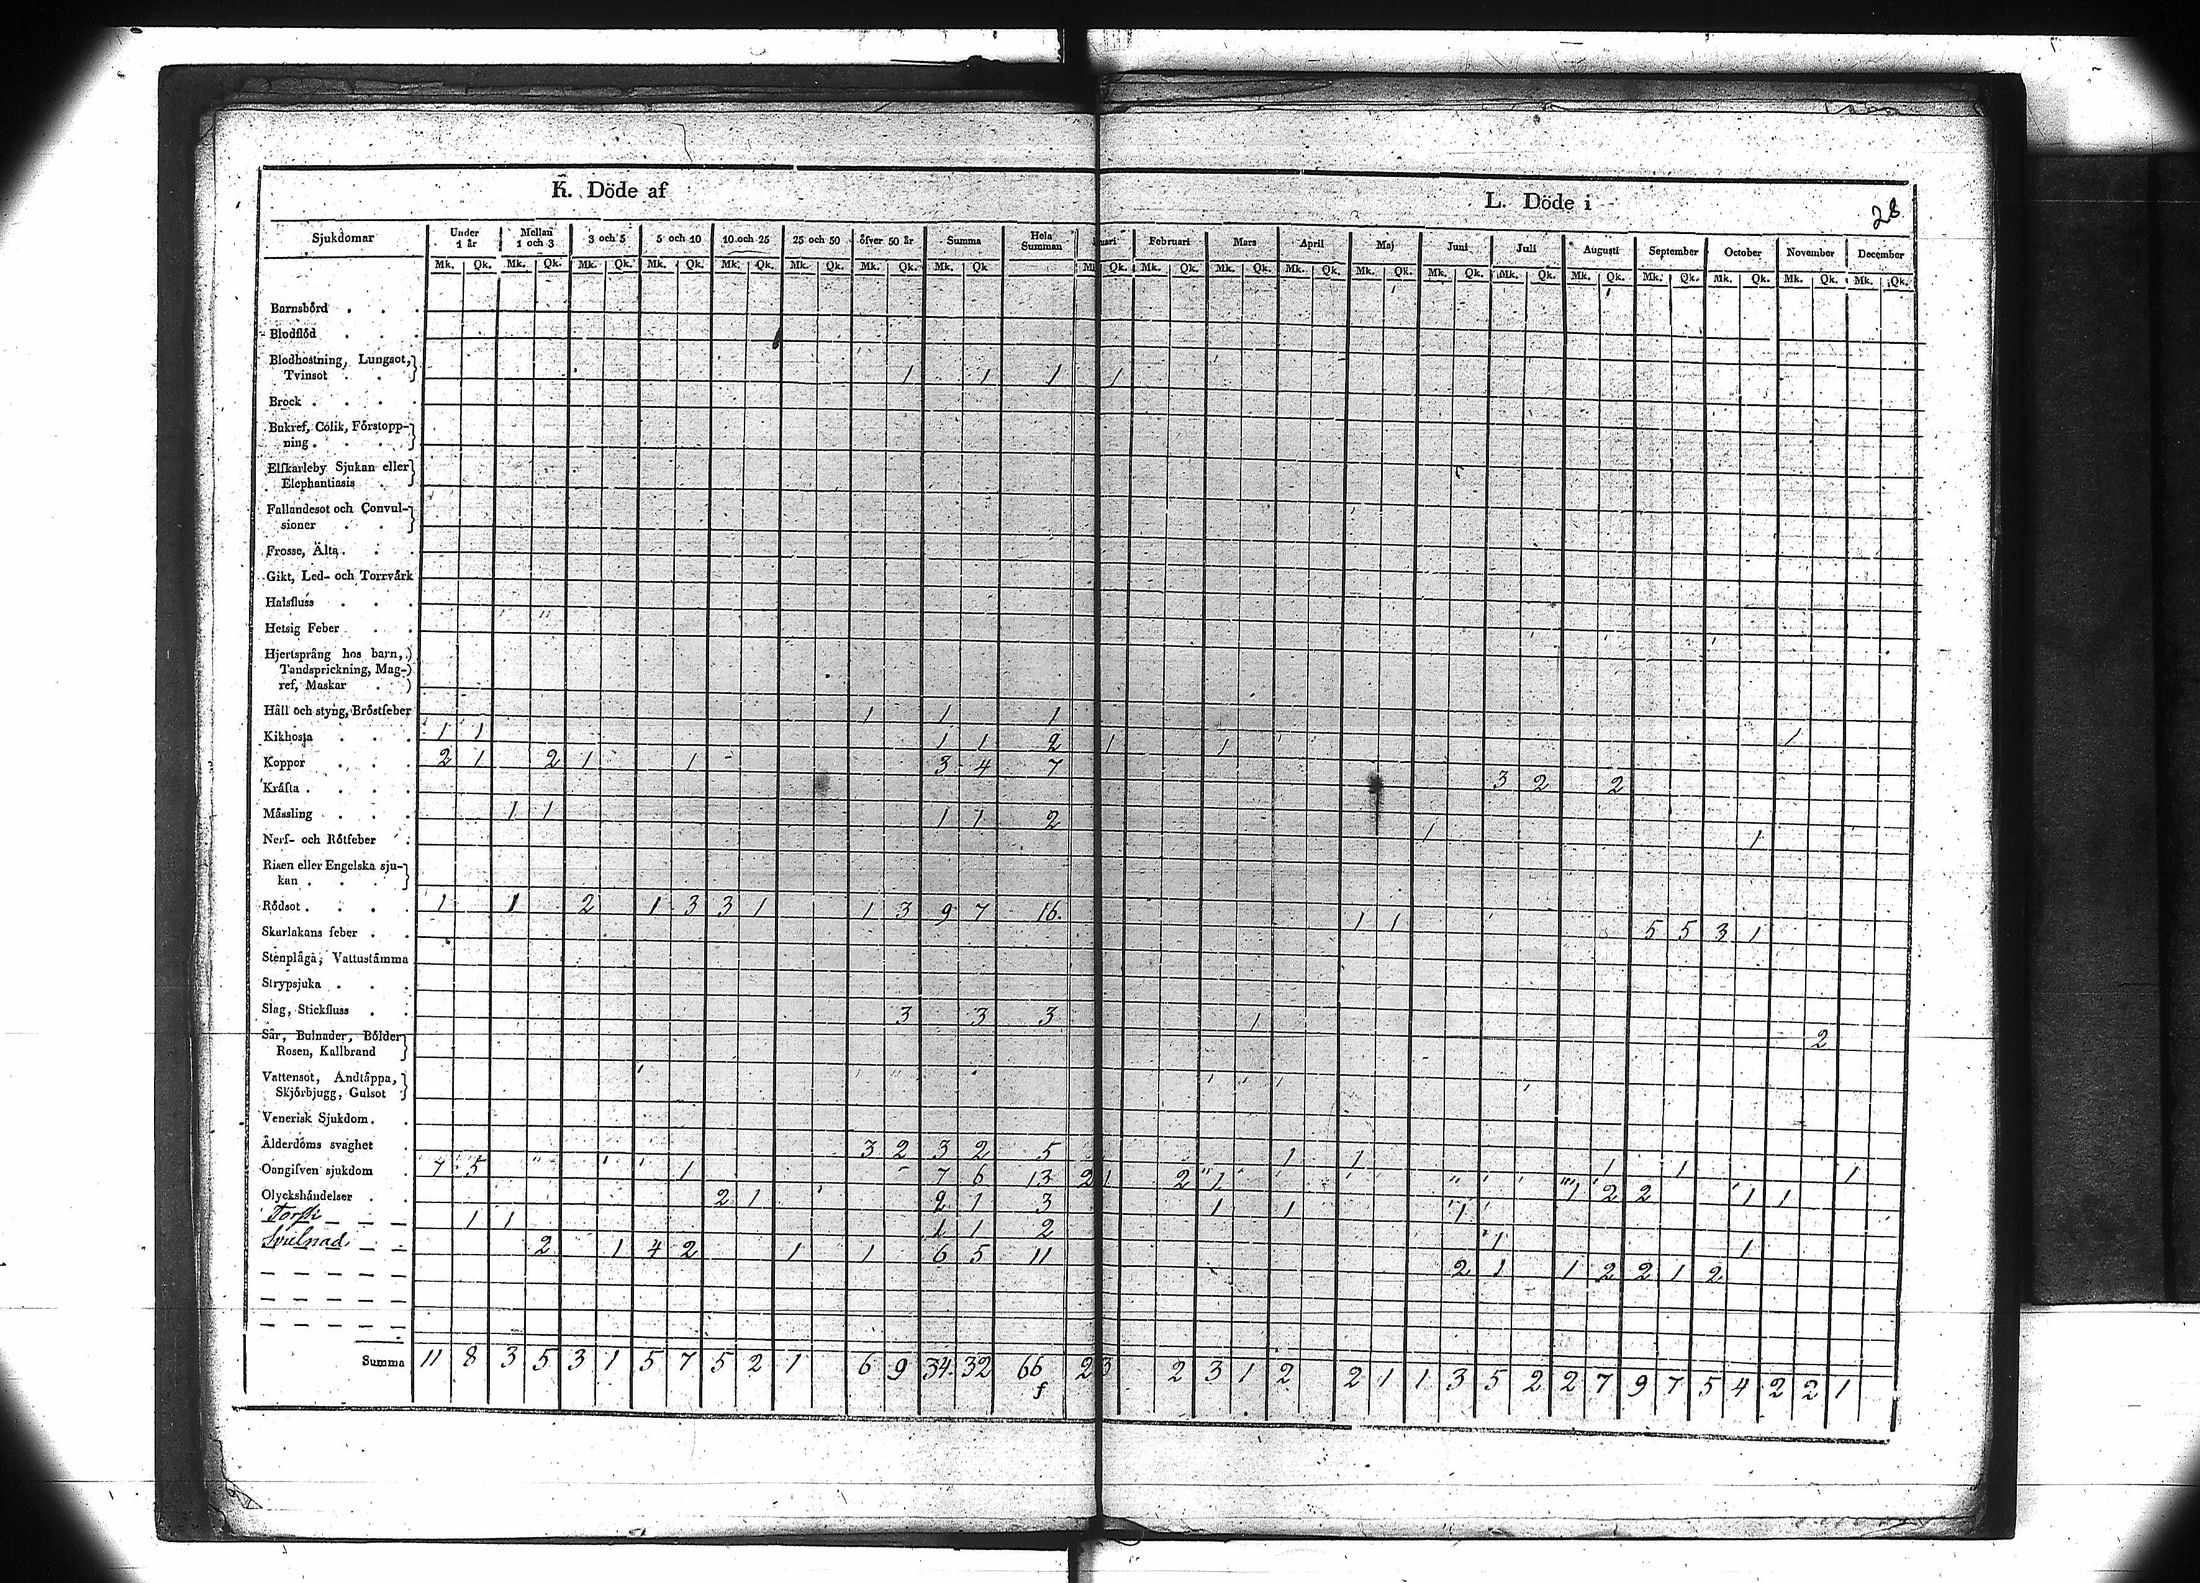 K. Döde af
L. Döde i
28
Sjukdomar Under 1 år Mellan 1 och 3 3 och 5 5 och 10 10 och 25 25 och 50 öfver 50 år Summa Hela Summan nuari Februari Mars April Maj Juni Juli Augusti September October November December
Mk. Qk. Mk. Qk. Mk. Qk. Mk. Qk. Mk. Qk. Mk. Qk. Mk. Qk. Mk. Qk Mk Qk. Mk. Qk. Mk. Qk. Mk. Qk. Mk. Qk. Mk. Qk. Mk. Qk. Mk. Qk. Mk. Qk. Mk. Qk. Mk. Qk. Mk. Qk.
Barnsbörd . . .
Blodflöd . . .
Blodhostning, Lungsot,
Tvinsot . . . 1 1 1 1
Brock . . . .
Bukref, Colik, Förstopp-
ning . . . .
Elfkarleby Sjukan eller
Elephantiasis .
Fallandesot och Convul-
sioner . . .
Frosse, Älta . . .
Gikt, Led- och Torrvärk
Halsfluss . . .
Hetsig Feber . . .
Hjertsprång hos barn,
Tandsprickning, Mag-
ref, Maskar .
Håll och styng, Bröstfeber 1 1 1
Kikhosta . . . 1 1 1 1 2 1 1 1
Koppor . . . 2 1 2 1 1 3 4 7 3 2 2
Kräfta . . . .
Mässling . . . 1 1 1 1 2 1 1
Nerf- och Rötfeber .
Risen eller Engelska sju-
kan . . . .
Rödsot . . . . 1 1 2 1 3 3 1 1 3 9 7 16. 1 1 5 5 3 1
Skarlakans feber . .
Stenplåga, Vattustämma
Strypsjuka . . .
Slag, Stickfluss . . 3 3 3 1 2
Sår, Bulnader, Bölder
Rosen, Kallbrand
Vattensot, Andtäppa,
Skjörbjugg, Gulsot
Venerisk Sjukdom . .
Ålderdoms svaghet . 3 2 3 2 5 1 1 1 1 1
Oangifven sjukdom . 7 5 1 7 6 13 2 1 2 1 1 2 2 1 1
Olyckshändelser . . 2 1 2 1 3 1 1 1
Torsk 1 1 1 1 2 1 1
Svulnad 2 1 4 2 1 1 6 5 11 2 1 1 2 2 1 2
Summa 11 8 3 5 3 1 5 7 5 2 1 6 9 34 32 66 2 3 2 3 1 2 2 1 1 3 5 2 2 7 9 7 5 4 2 2 1